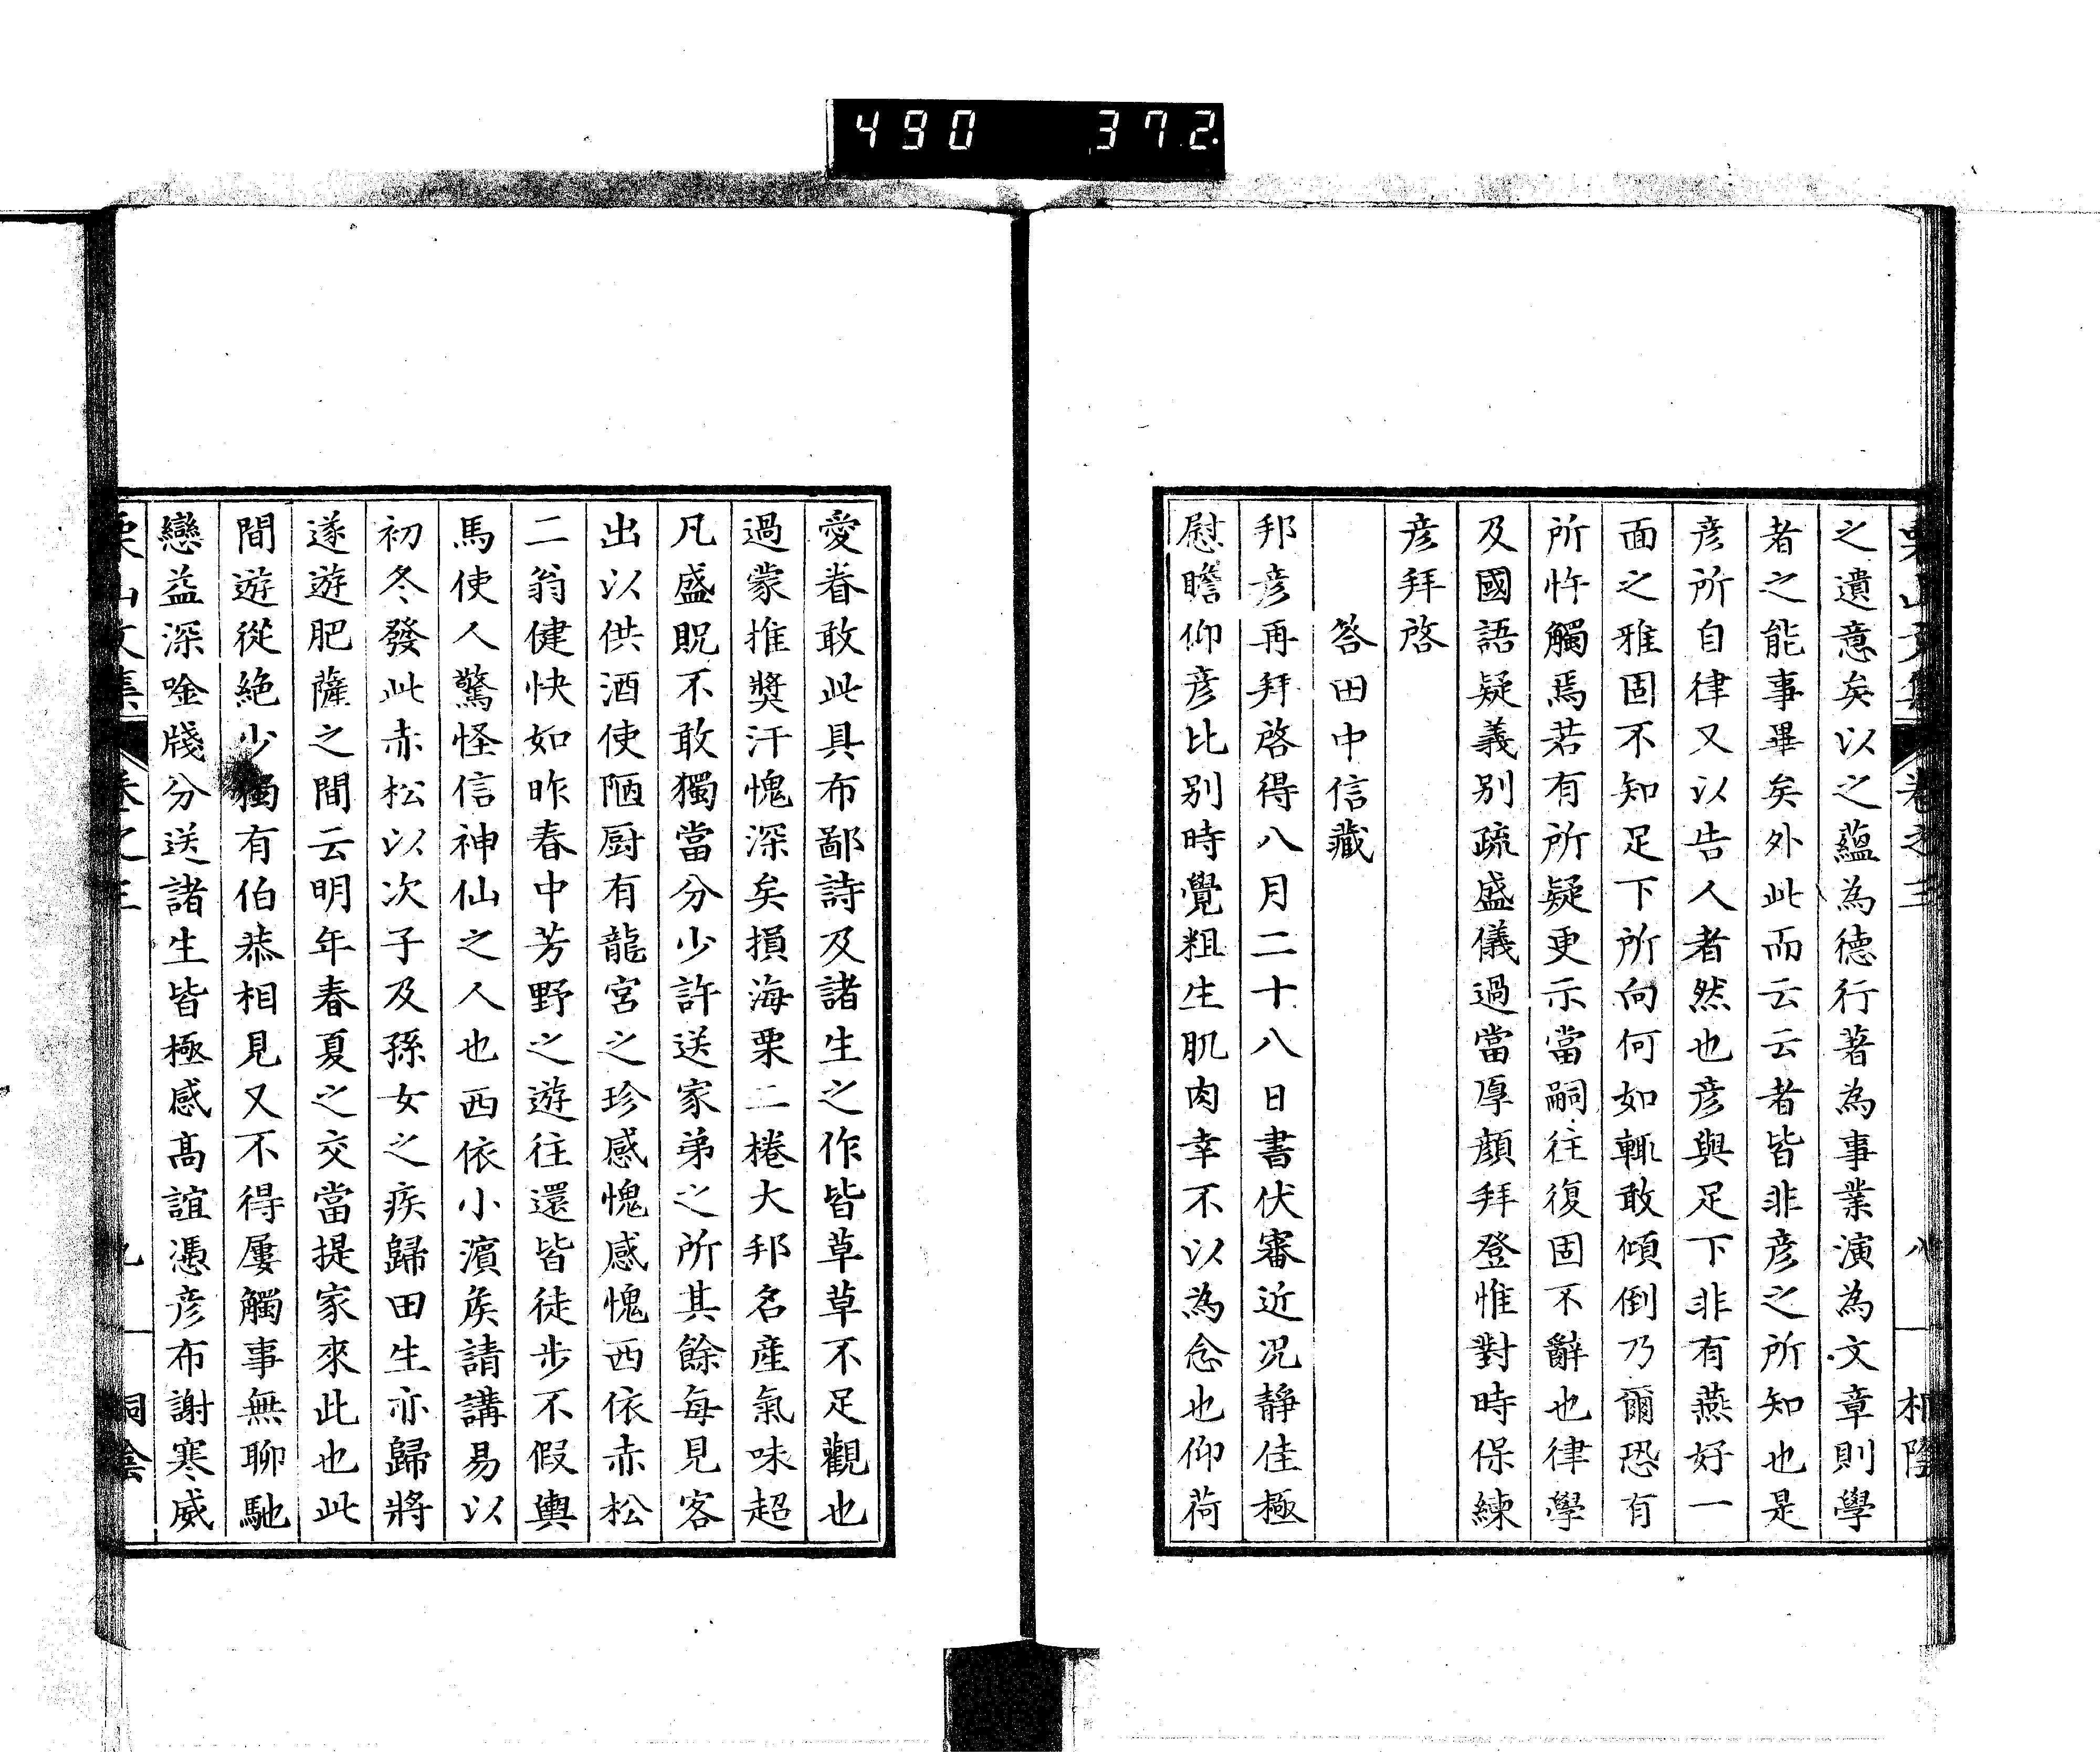 490 372
之遺意矣以之蘊為德行著為事業演為文章則學
者之能事畢矣外此而云云者皆非彦之所知也是
彦所自律又以告人者然也彦與足下非有燕好一
面之雅固不知足下所向何如輙敢傾倒乃爾恐有
所忤觸焉若有所疑更示當嗣往復固不辭也律學
及國語疑義別疏盛儀過當厚顏拜登惟對時保練
彦拜啓
答田中信藏
邦彦再拜啓得八月二十八日書伏審近況靜佳極
慰瞻仰彦比別時覺粗生肌肉幸不以為念也仰荷
愛眷敢此具布鄙詩及諸生之作皆草草不足觀也
過蒙推獎汗愧深矣損海栗二棬大邦名產氣味超
凡盛貺不敢獨當分少許送家弟之所其餘每見客
出以供酒使陋厨有龍宮之珍感愧感愧西依赤松
二翁健快如昨春中芳野之遊往還皆徒步不假輿
馬使人驚怪信神仙之人也西依小濵矦請講易以
初冬發此赤松以次子及孫女之疾歸田生亦歸將
遂遊肥薩之間云明年春夏之交當提家來此也此
間遊從絶少獨有伯恭相見又不得屢觸事無聊馳
戀益深唫牋分送諸生皆極感高誼憑彦布謝寒威
栗山文集 卷之三